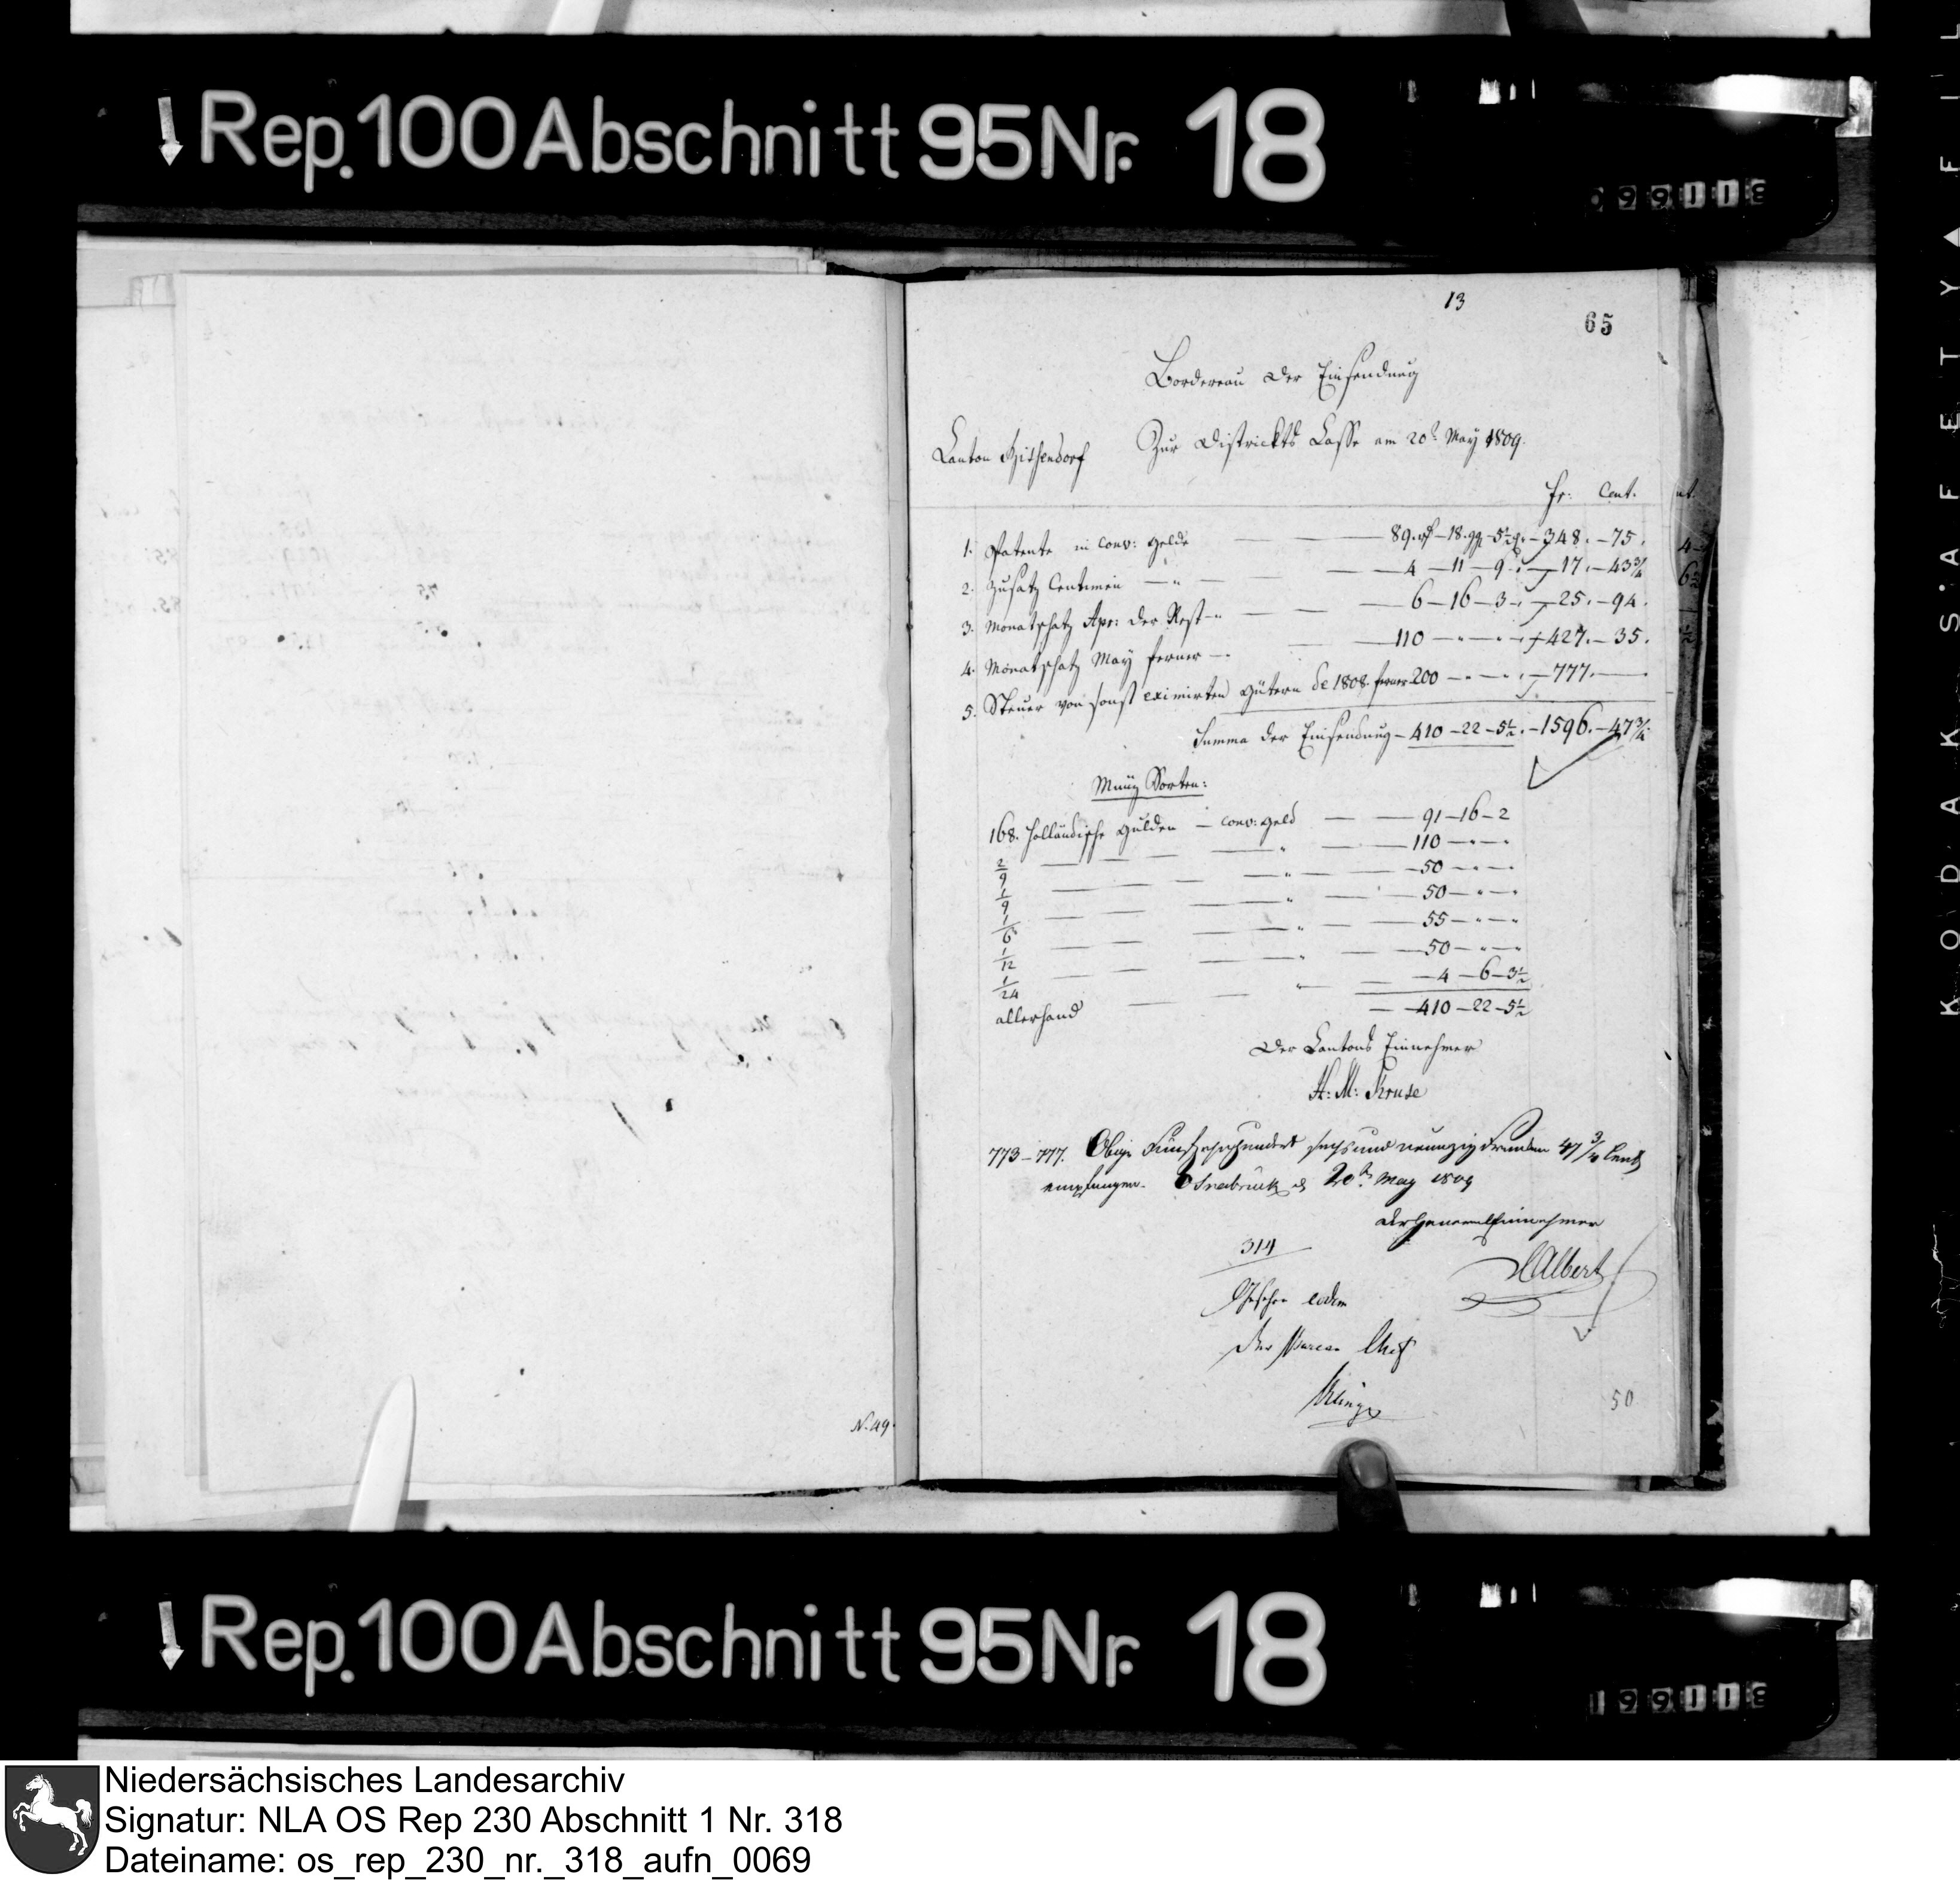 Rep. 100 Abschnitt 95 Nr. 18
13
65
Bordereau der Einsendung
Canton Zur Districkts Casse am 20t May 1809.
Fr: Cent.
1. Patente in conv: Gelde — — 89. rf — 18. gg — 5½ — 348. — 75.
2. Zusatz Centimen — " — — — 4 — 11 — 9 — 17. — 43¾
3. Monatschatz Apr: der Rest — " — — 6 — 16 — 3 — 25. — 94.
4. Monatschatz May ferner — " — 110 — " — " — 427. — 35.
5. Steuer von sonst eximirten Gütern de 1808. ferner 200 — " — " — 777. —
Summa der Einsendung — 410 — 22 — 5½. — 1596. — 47¾
Münz Sorten:
168. Holländische Gulden — conv: Geld — — 91 — 16 — 2
2/9 — — — " — — 110 — " — "
1/9 — — — " — — 50 — " — "
1/6 — — — " — — 50 — " — "
1/12 — — — " — — 55 — " — "
1/24 — — — " — — 50 — " — "
allerhand — — " — 4 — 6 — 3½
— 410 — 22 — 5½
Der Cantons Einnehmer
H: M: Kruse
773 – 777. Obige Fünfzehnhundert sechs und neunzig Franken 47¾ Cent
empfangen. Osnabrück d 20t May 1809
der General Einnehmer
314
Albert
Gesehen eodem
der Bureau Chef
50
N. 49.
Rep. 100 Abschnitt 95 Nr. 18
KODAK SAFETY FIL
Niedersächsisches Landesarchiv
Signatur: NLA OS Rep 230 Abschnitt 1 Nr. 318
Dateiname: os_rep_230_nr._318_aufn_0069